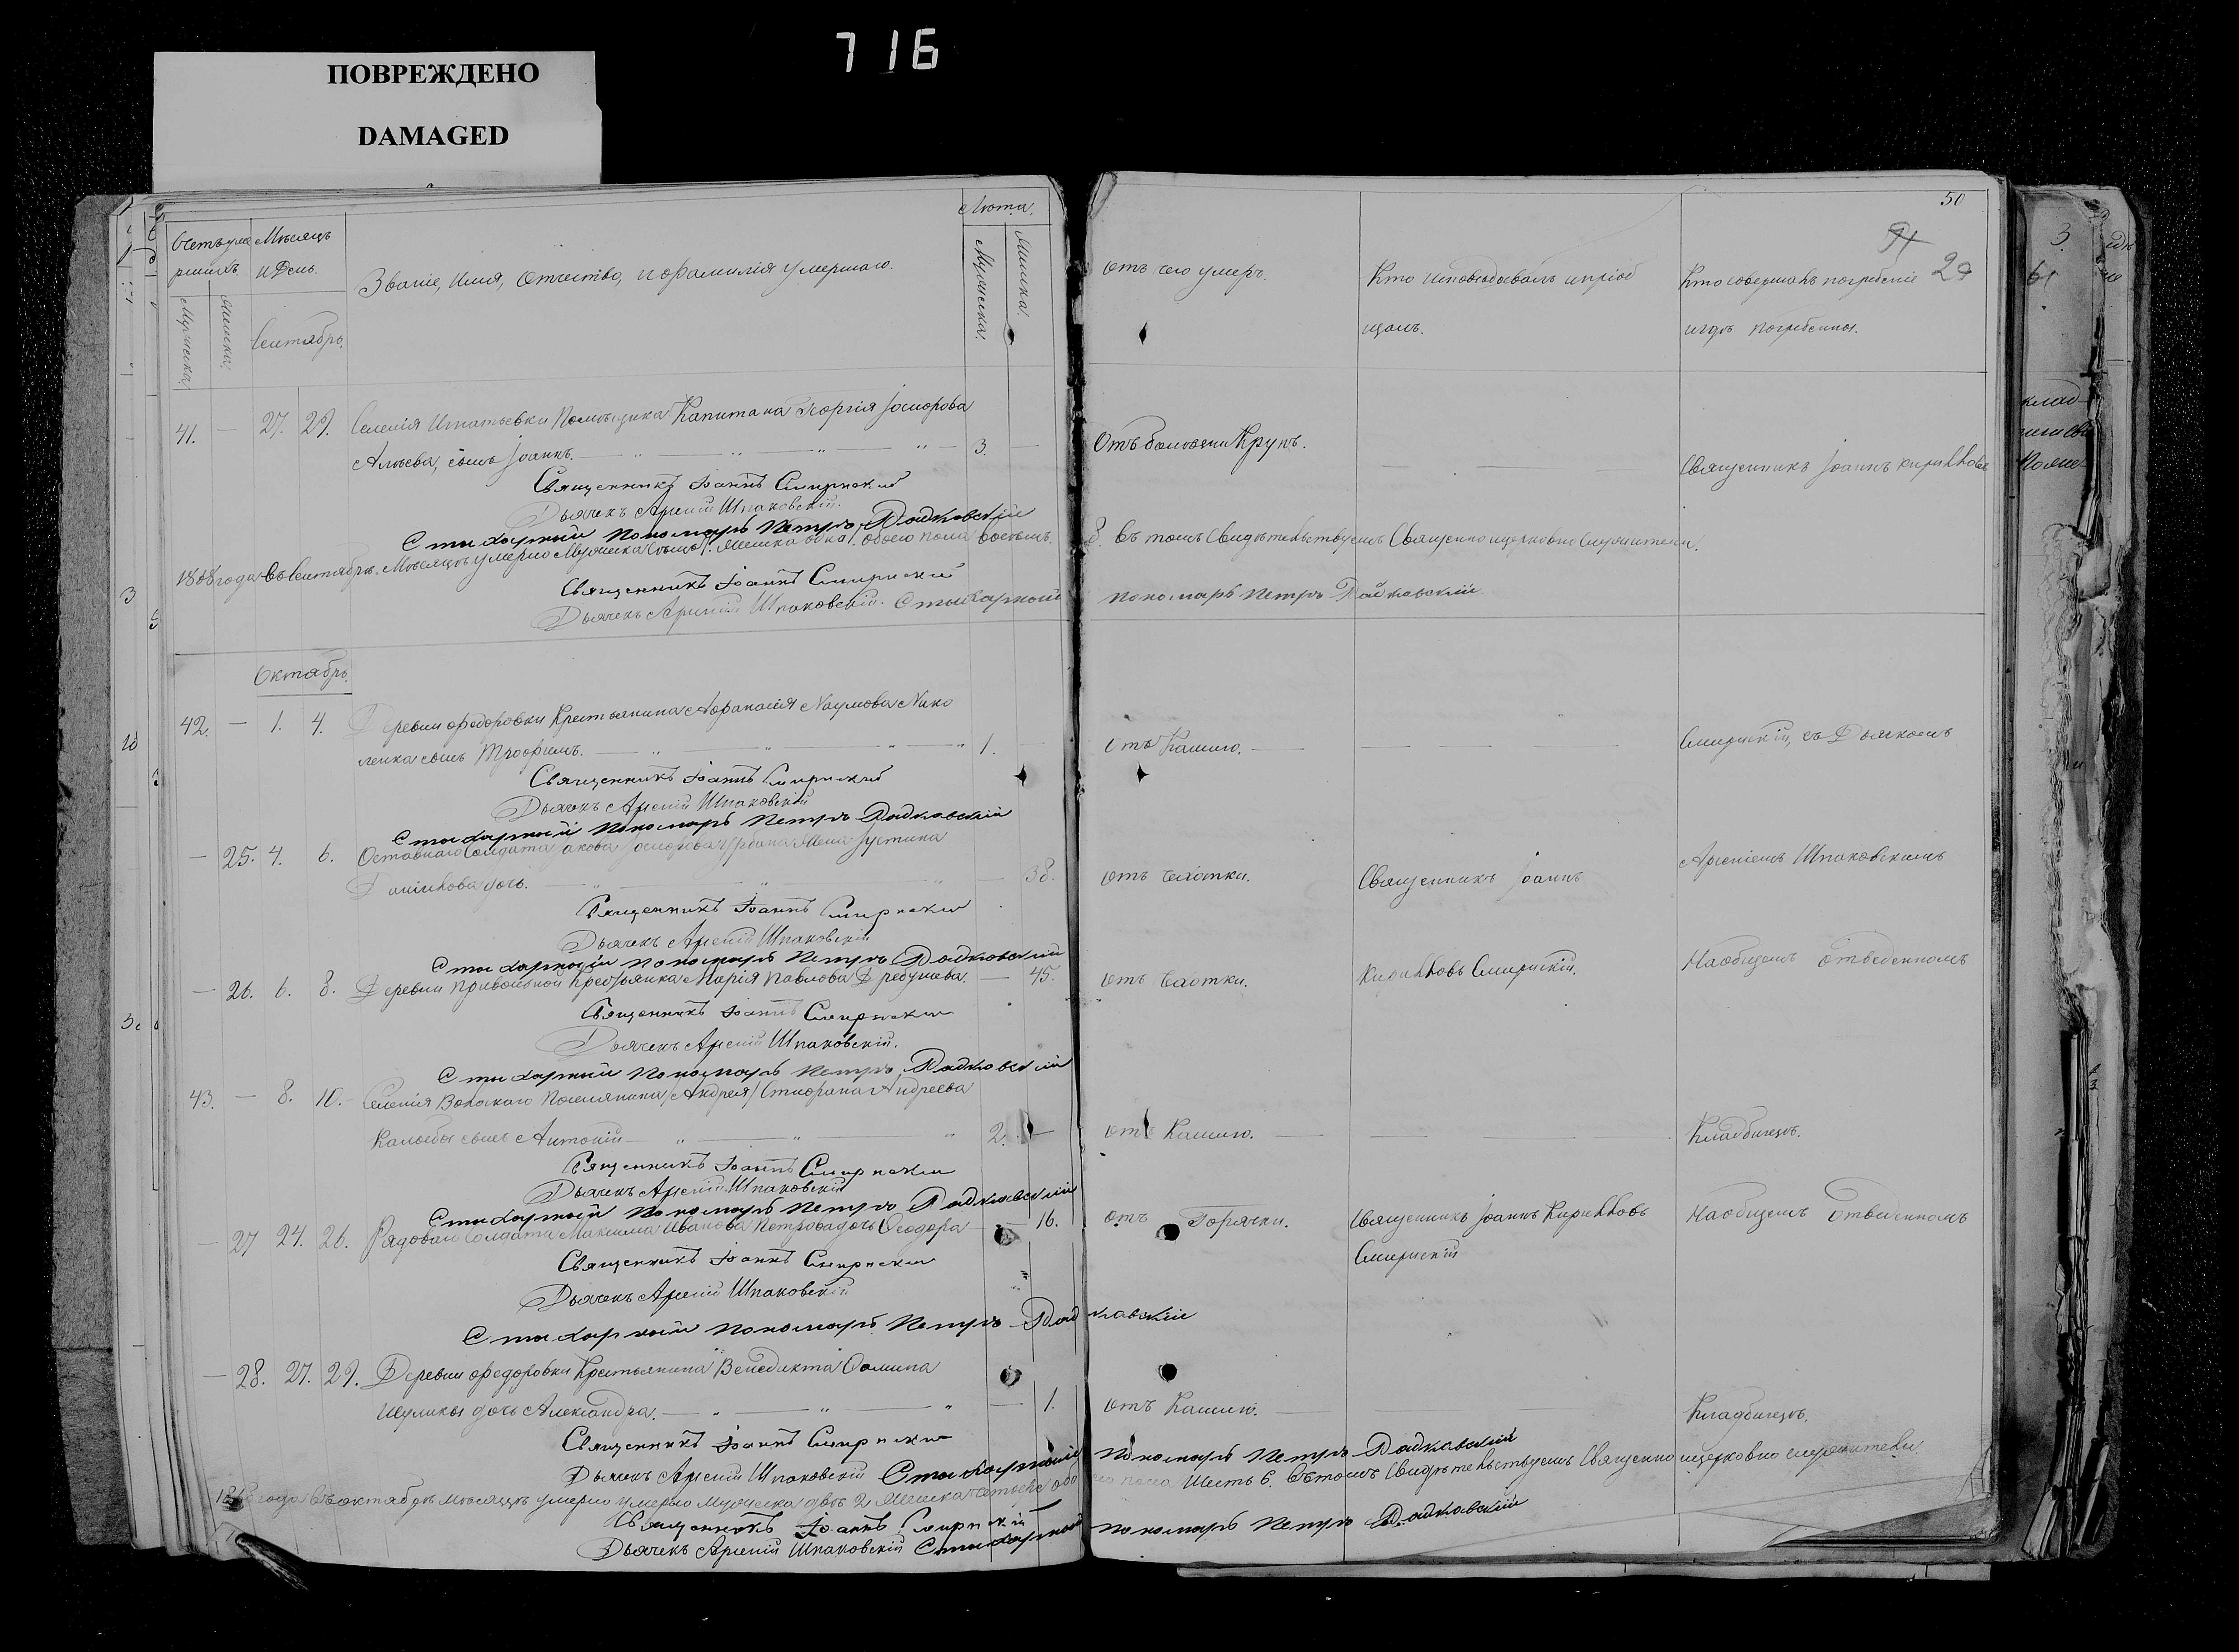 716
ПОВРЕЖДЕНО
DAMAGED
50
Лѣта.
Счетъ уме
ршихъ
Мѣсяцъ
и День.
Званіе, Имя, Отчество, и фамилія умершаго.
Мужеска.
Женска.
Мужеска.
Женска.
Сентябрь.
Отъ чего умеръ.
Кто исповѣдывалъ и пріоб
щалъ.
Кто совершалъ погребеніе
и гдѣ погребены.
41. — 27. 29. Селенія Игнатьевки Помѣщика Капитана Георгія
сынъ Іоаннъ. — 3. — Отъ болѣзни Крупъ. — Священникъ Іоаннъ Кирилловъ
Священникъ Іоаннъ Смирнскій
Дьячекъ Арсеній Шпаковскій.
Стихарный Пономарь Петръ Дадковскій
года въ Сентябрѣ Мѣсяцѣ умерло Мужеска семь 7. Женска одна 1. обоего пола восемь. 8. Въ томъ Свидѣтельствуемъ Священно и церковно служители.
Священникъ Іоаннъ Смирнскій
Дьячекъ Арсеній Шпаковскій. Стихарный Пономарь Петръ Дадковскій
Октябрь.
42. — 1. 4. Деревни Федоровки Крестьянина Афанасія Наумова Нико
ленка сынъ Трофимъ. — 1. Отъ Кашлю. — Смирнскій, съ Дьячкомъ
Священникъ Іоаннъ Смирнскій
Дьячекъ Арсеній Шпаковскій
Стихарный Пономарь Петръ Дадковскій
— 25. 4. 6. Отставнаго Солдата Іакова Жена Іустина
дочь. — 38. Отъ Чахотки. Священникъ Іоаннъ Арсеніемъ Шпаковскимъ
Священникъ Іоаннъ Смирнскій
Дьячекъ Арсеній Шпаковскій
Стихарный Пономарь Петръ Дадковскій
— 26. 6. 8. Деревни Привольной Крестьянка Марія Павлова — 45. Отъ Чахотки. Кирилловъ Смирнскій. На общемъ отведенномъ
Священникъ Іоаннъ Смирнскій
Дьячекъ Арсеній Шпаковскій.
Стихарный Пономарь Петръ Дадковскій
43. — 8. 10. Селенія Поселянина (Андрея) Стефана Андреева
сынъ Антоній — 2. — Отъ Кашлю. — Кладбищѣ.
Священникъ Іоаннъ Смирнскій
Дьячекъ Арсеній Шпаковскій
Стихарный Пономарь Петръ Дадковскій
— 27 24. 26. Рядоваго Солдата Максима Иванова Петрова дочь Ѳеодора — 16. Отъ Горячки. Священникъ Іоаннъ Кирилловъ На общемъ Отведенномъ
Смирнскій
Священникъ Іоаннъ Смирнскій
Дьячекъ Арсеній Шпаковскій
Стихарный Пономарь Петръ Дадковскій
— 28. 27. 29. Деревни Федоровки Крестьянина Венедикта Ѳомина
Шулики дочь Александра. — 1. Отъ Кашлю. — Кладбищѣ.
Священникъ Іоаннъ Смирнскій
Дьячекъ Арсеній Шпаковскій Стихарный Пономарь Петръ Дадковскій
года въ октябрѣ мѣсяцѣ умерло умерло Мужеска двѣ 2 Женска четыре пола Шесть 6. Въ томъ Свидѣтельствуемъ Священно и церковно служители
Священникъ Іоаннъ Смирнскій
Дьячекъ Арсеній Шпаковскій Стихарный Пономарь Петръ Дадковскій